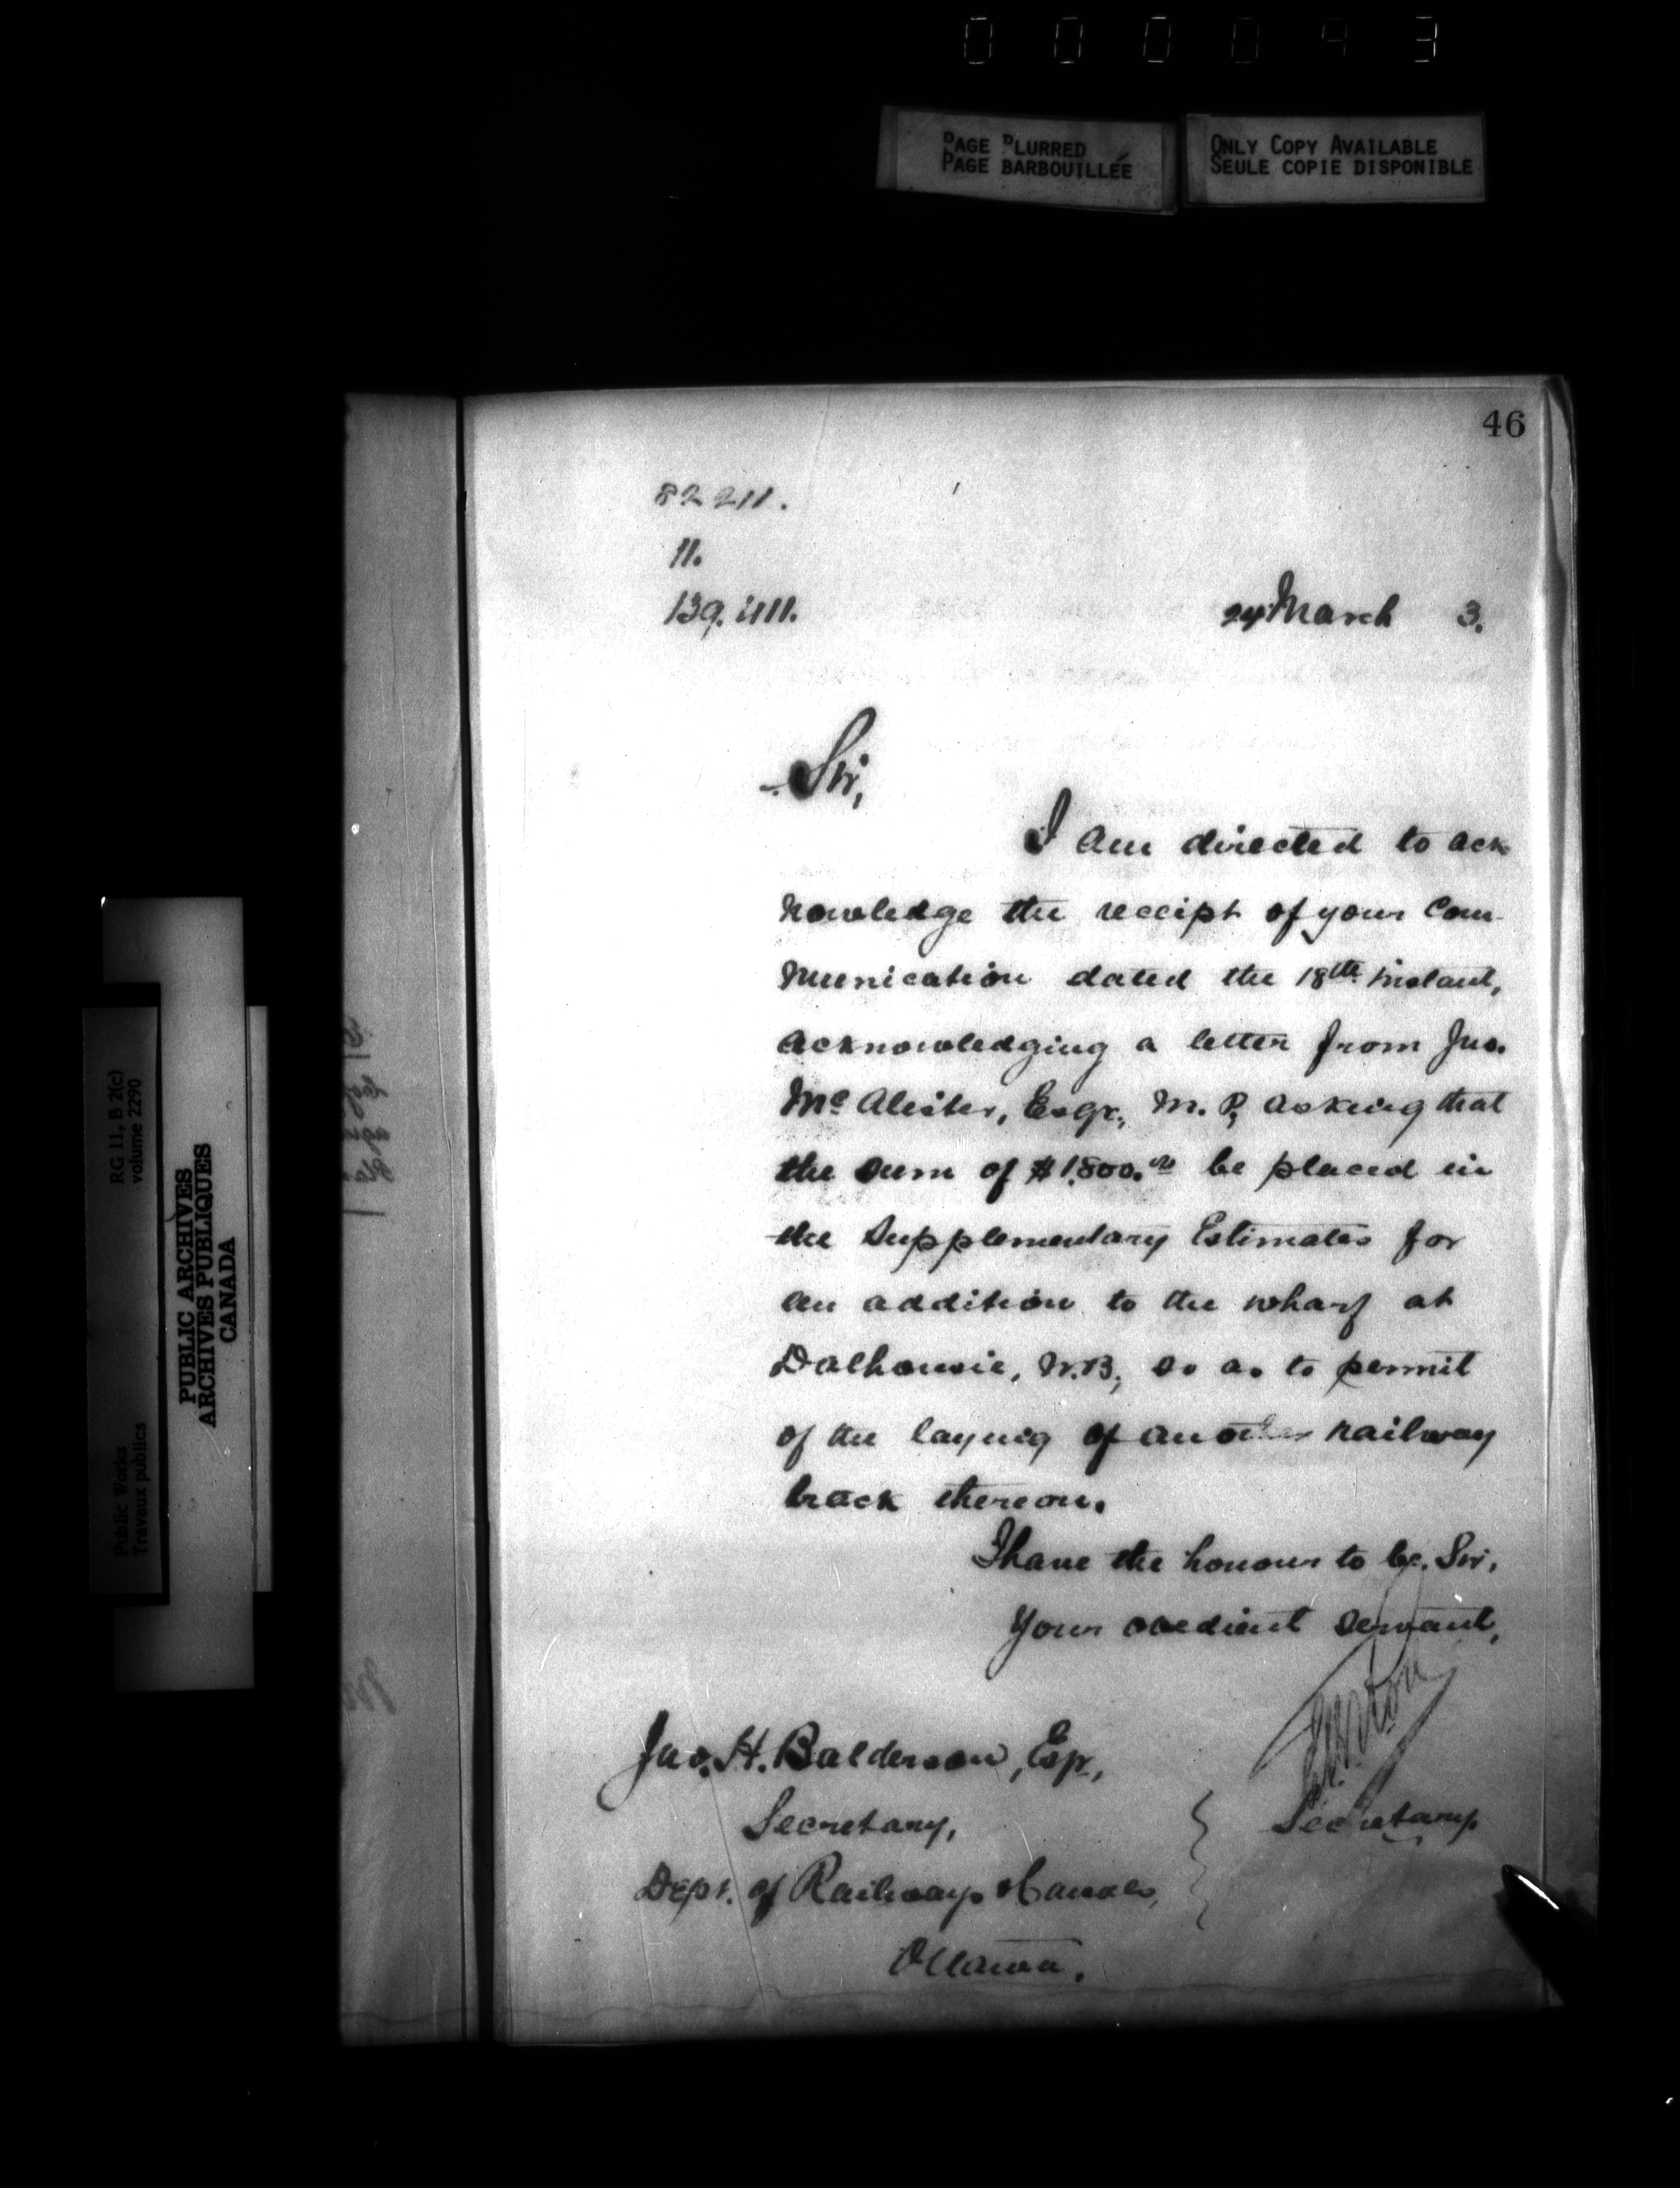 000043
PAGE BLURRED
PAGE BARBOUILLÉE
ONLY COPY AVAILABLE
SEULE COPIE DISPONIBLE
46
82211.
11.
24 March 3.
Sir,
I am directed to ack
nowledge the receipt of your Com-
munication dated the 18th instant,
acknowledging a letter from Jno.
McAlister, Esqr., M.P., asking that
the sum of $1,800.00 be placed in
the Supplementary Estimates for
an addition to the wharf at
Dalhousie, N.B., so as to permit
of the laying of another railway
track thereon.
I have the honour to be, Sir,
Your obedient servant,
Jno. H. Balderson, Esqr.,
Secretary,
Secretary
Dept. of Railways & Canals,
Ottawa.
RG 11, B 2(c)
volume 2290
Public Works
Travaux publics
PUBLIC ARCHIVES
ARCHIVES PUBLIQUES
CANADA